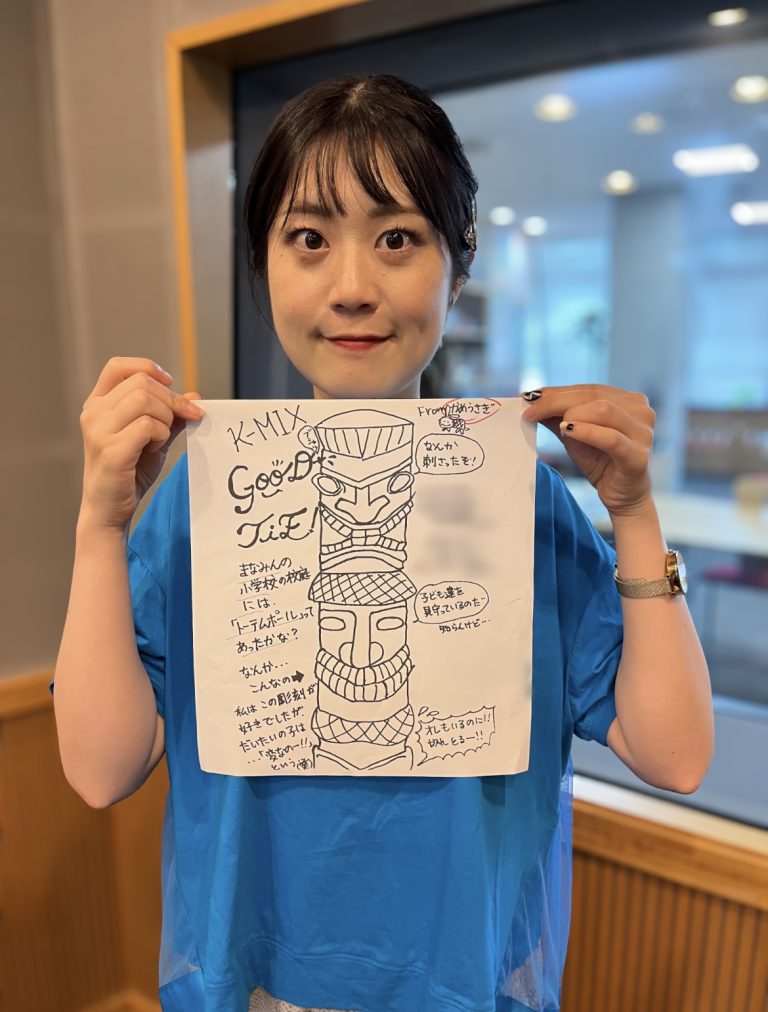 K-MIX
GOOD
TiE!
まなみんの
小学校の校庭
には、
「トーテムポール」って
あったかな?
なんか…
こんなの➡
私はこの彫刻が
好きでしたが、
だいたいの子は
…「変なのー!!」
という(笑)
From かめうさぎ
なんか
刺さったぞ!
子ども達を
見守っているのだ
知らんけど…
オレもいるのに!!